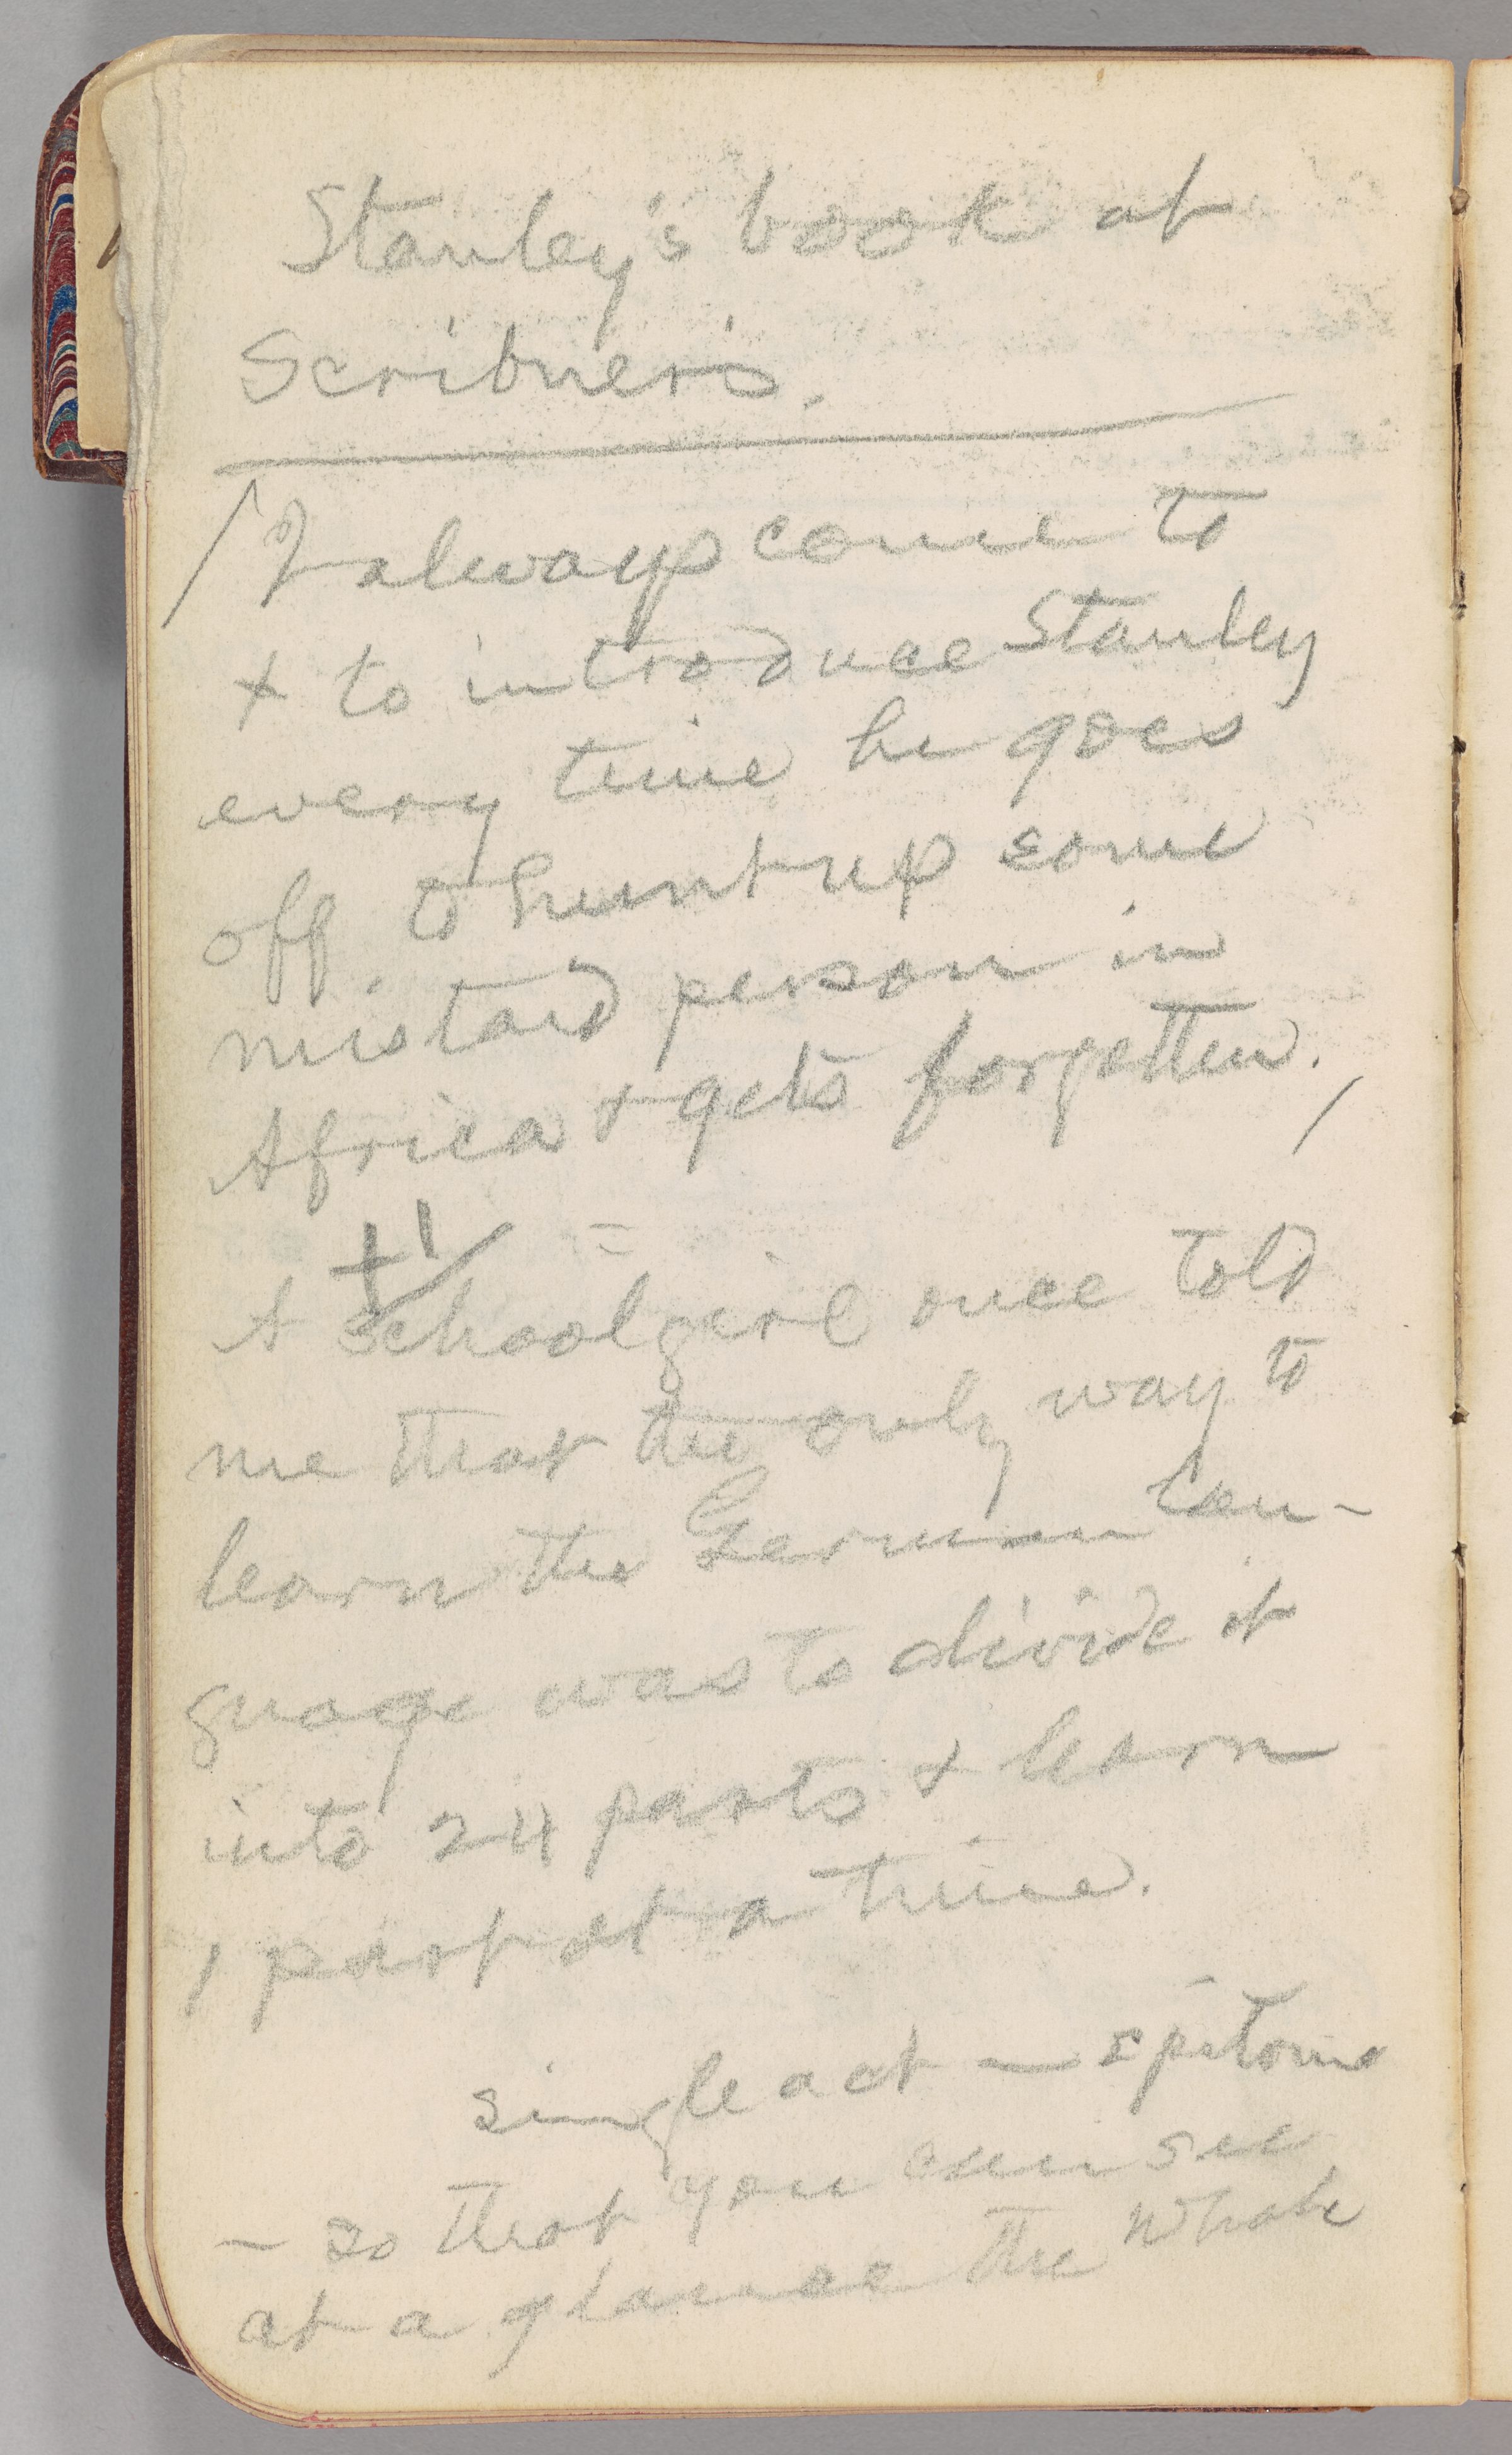 Stanley's book at
Scribner's.
/I always come to
+ to introduce Stanley
every time he goes
off to hunt up some
mislaid person in
Africa & gets forgotten./
+1/
A schoolgirl once told
me that the only way to
learn the German lan-
guage was to divide it
into 24 parts & learn
1 part at a time.
single act — epitome
— so that you can see
at a glance the whole